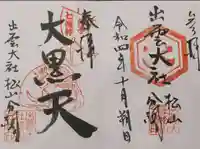 出雲大社
松山分祠
令和四年十月朔日
奉拝
大黒天
出雲大社
松山分祠